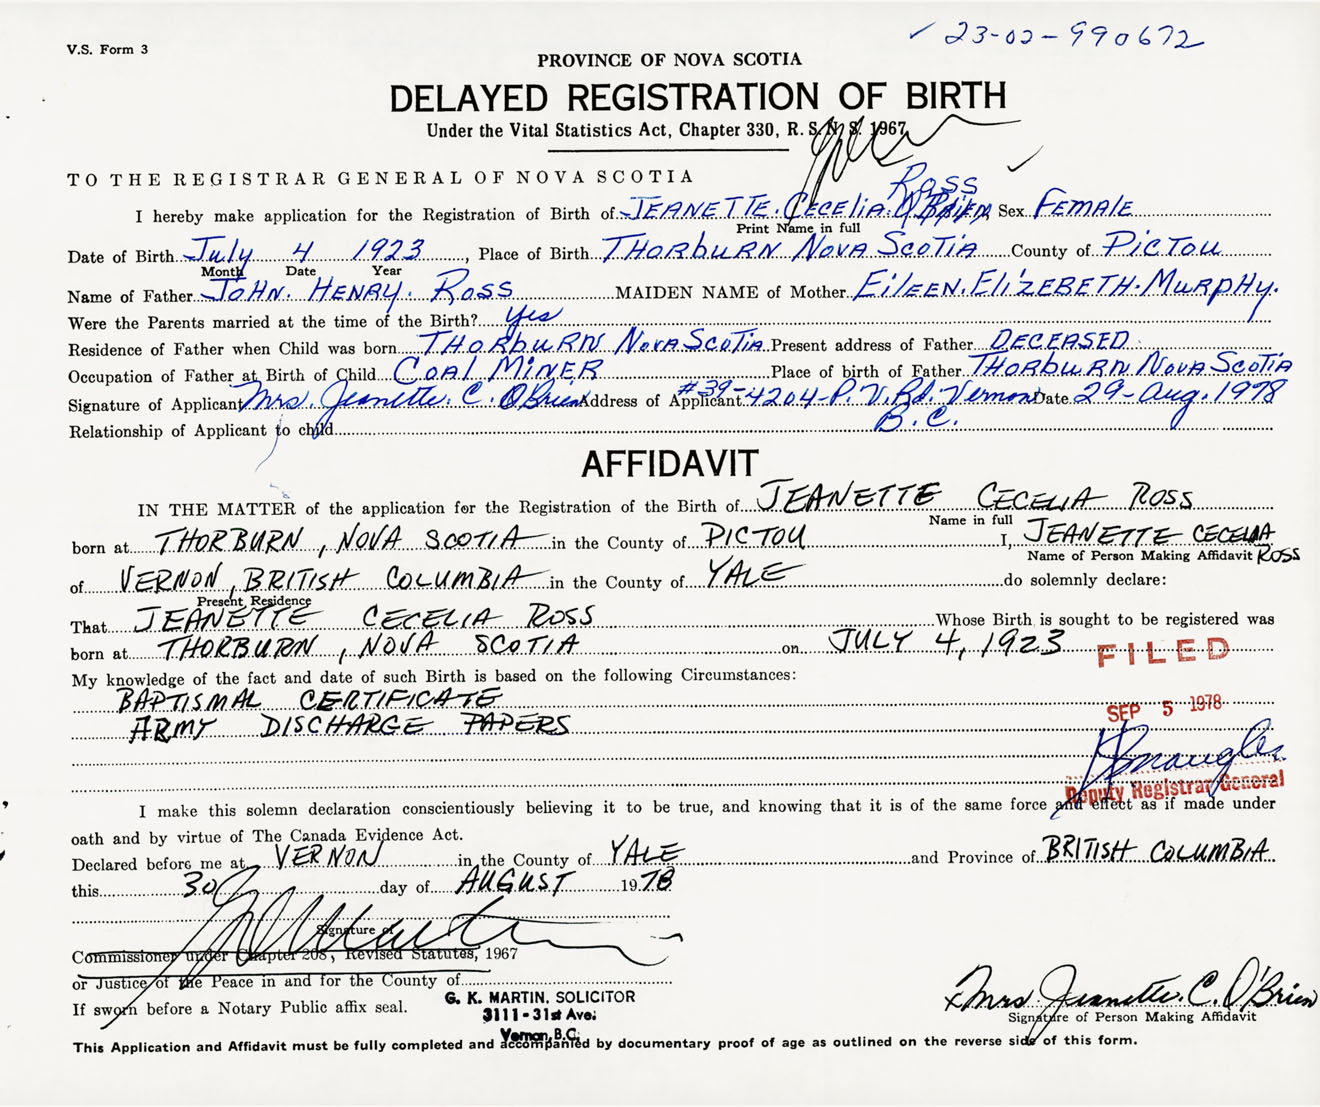 V.S. Form 3
✓ 23-02-990672
PROVINCE OF NOVA SCOTIA
DELAYED REGISTRATION OF BIRTH
Under the Vital Statistics Act, Chapter 330, R. S. N. S. 1967
TO THE REGISTRAR GENERAL OF NOVA SCOTIA
Ross
I hereby make application for the Registration of Birth of JEANETTE. CECELIA. O'BRIEN, Sex FEMALE
Print Name in full
Date of Birth July 4 1923, Place of Birth THORBURN NOVA SCOTIA County of PICTOU
Month Date Year
Name of Father JOHN. HENRY. ROSS MAIDEN NAME of Mother EILEEN. ELIZEBETH. MURPHY.
Were the Parents married at the time of the Birth? yes
Residence of Father when Child was born THORBURN NOVA SCOTIA Present address of Father DECEASED
Occupation of Father at Birth of Child COAL MINER Place of birth of Father THORBURN NOVA SCOTIA
Signature of Applicant Mrs. Jeanette. C. O'Brien Address of Applicant #39-4204-P. V. Rd. Vernon Date 29-Aug. 1978
B.C.
Relationship of Applicant to child
AFFIDAVIT
IN THE MATTER of the application for the Registration of the Birth of JEANETTE CECELIA ROSS
Name in full
born at THORBURN, NOVA SCOTIA in the County of PICTOU I, JEANETTE CECELIA
Name of Person Making Affidavit ROSS
of VERNON, BRITISH COLUMBIA in the County of YALE do solemnly declare:
Present Residence
That JEANETTE CECELIA ROSS Whose Birth is sought to be registered was
born at THORBURN, NOVA SCOTIA on JULY 4, 1923
FILED
My knowledge of the fact and date of such Birth is based on the following Circumstances:
BAPTISMAL CERTIFICATE
SEP 5 1978
ARMY DISCHARGE PAPERS
Deputy Registrar General
I make this solemn declaration conscientiously believing it to be true, and knowing that it is of the same force and effect as if made under
oath and by virtue of The Canada Evidence Act.
Declared before me at VERNON in the County of YALE and Province of BRITISH COLUMBIA
this 30 day of AUGUST 1978
Signature of
Commissioner under Chapter 208, Revised Statutes, 1967
or Justice of the Peace in and for the County of
G. K. MARTIN, SOLICITOR
If sworn before a Notary Public affix seal.
3111 - 31st Ave.
Vernon, B.C.
x Mrs Jeanette. C. O'Brien
Signature of Person Making Affidavit
This Application and Affidavit must be fully completed and accompanied by documentary proof of age as outlined on the reverse side of this form.